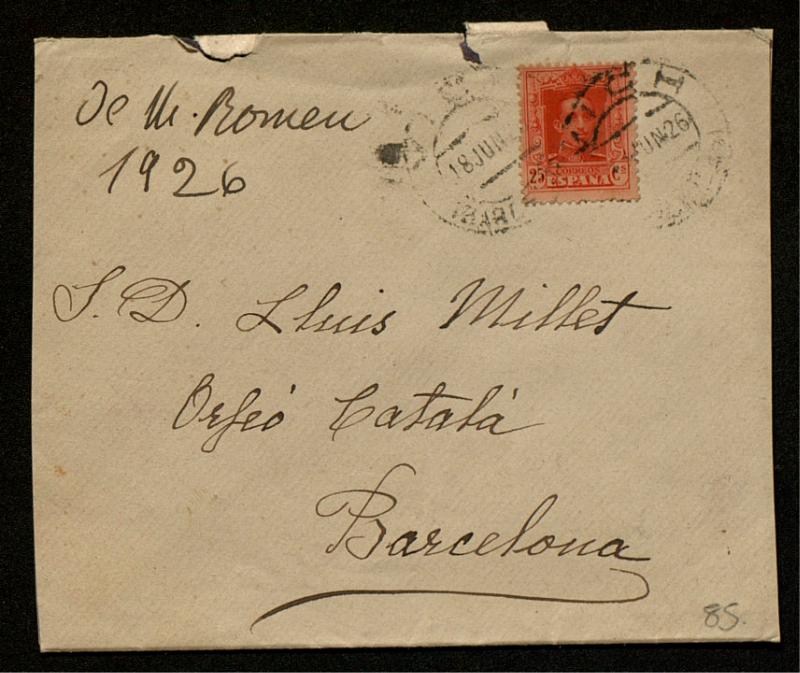 de M. Romeu
1926
18 JUN
JUN 26
25 CORREOS Cs
ESPAÑA
S. D. Lluis Millet
Orfeó Català
Barcelona
85.